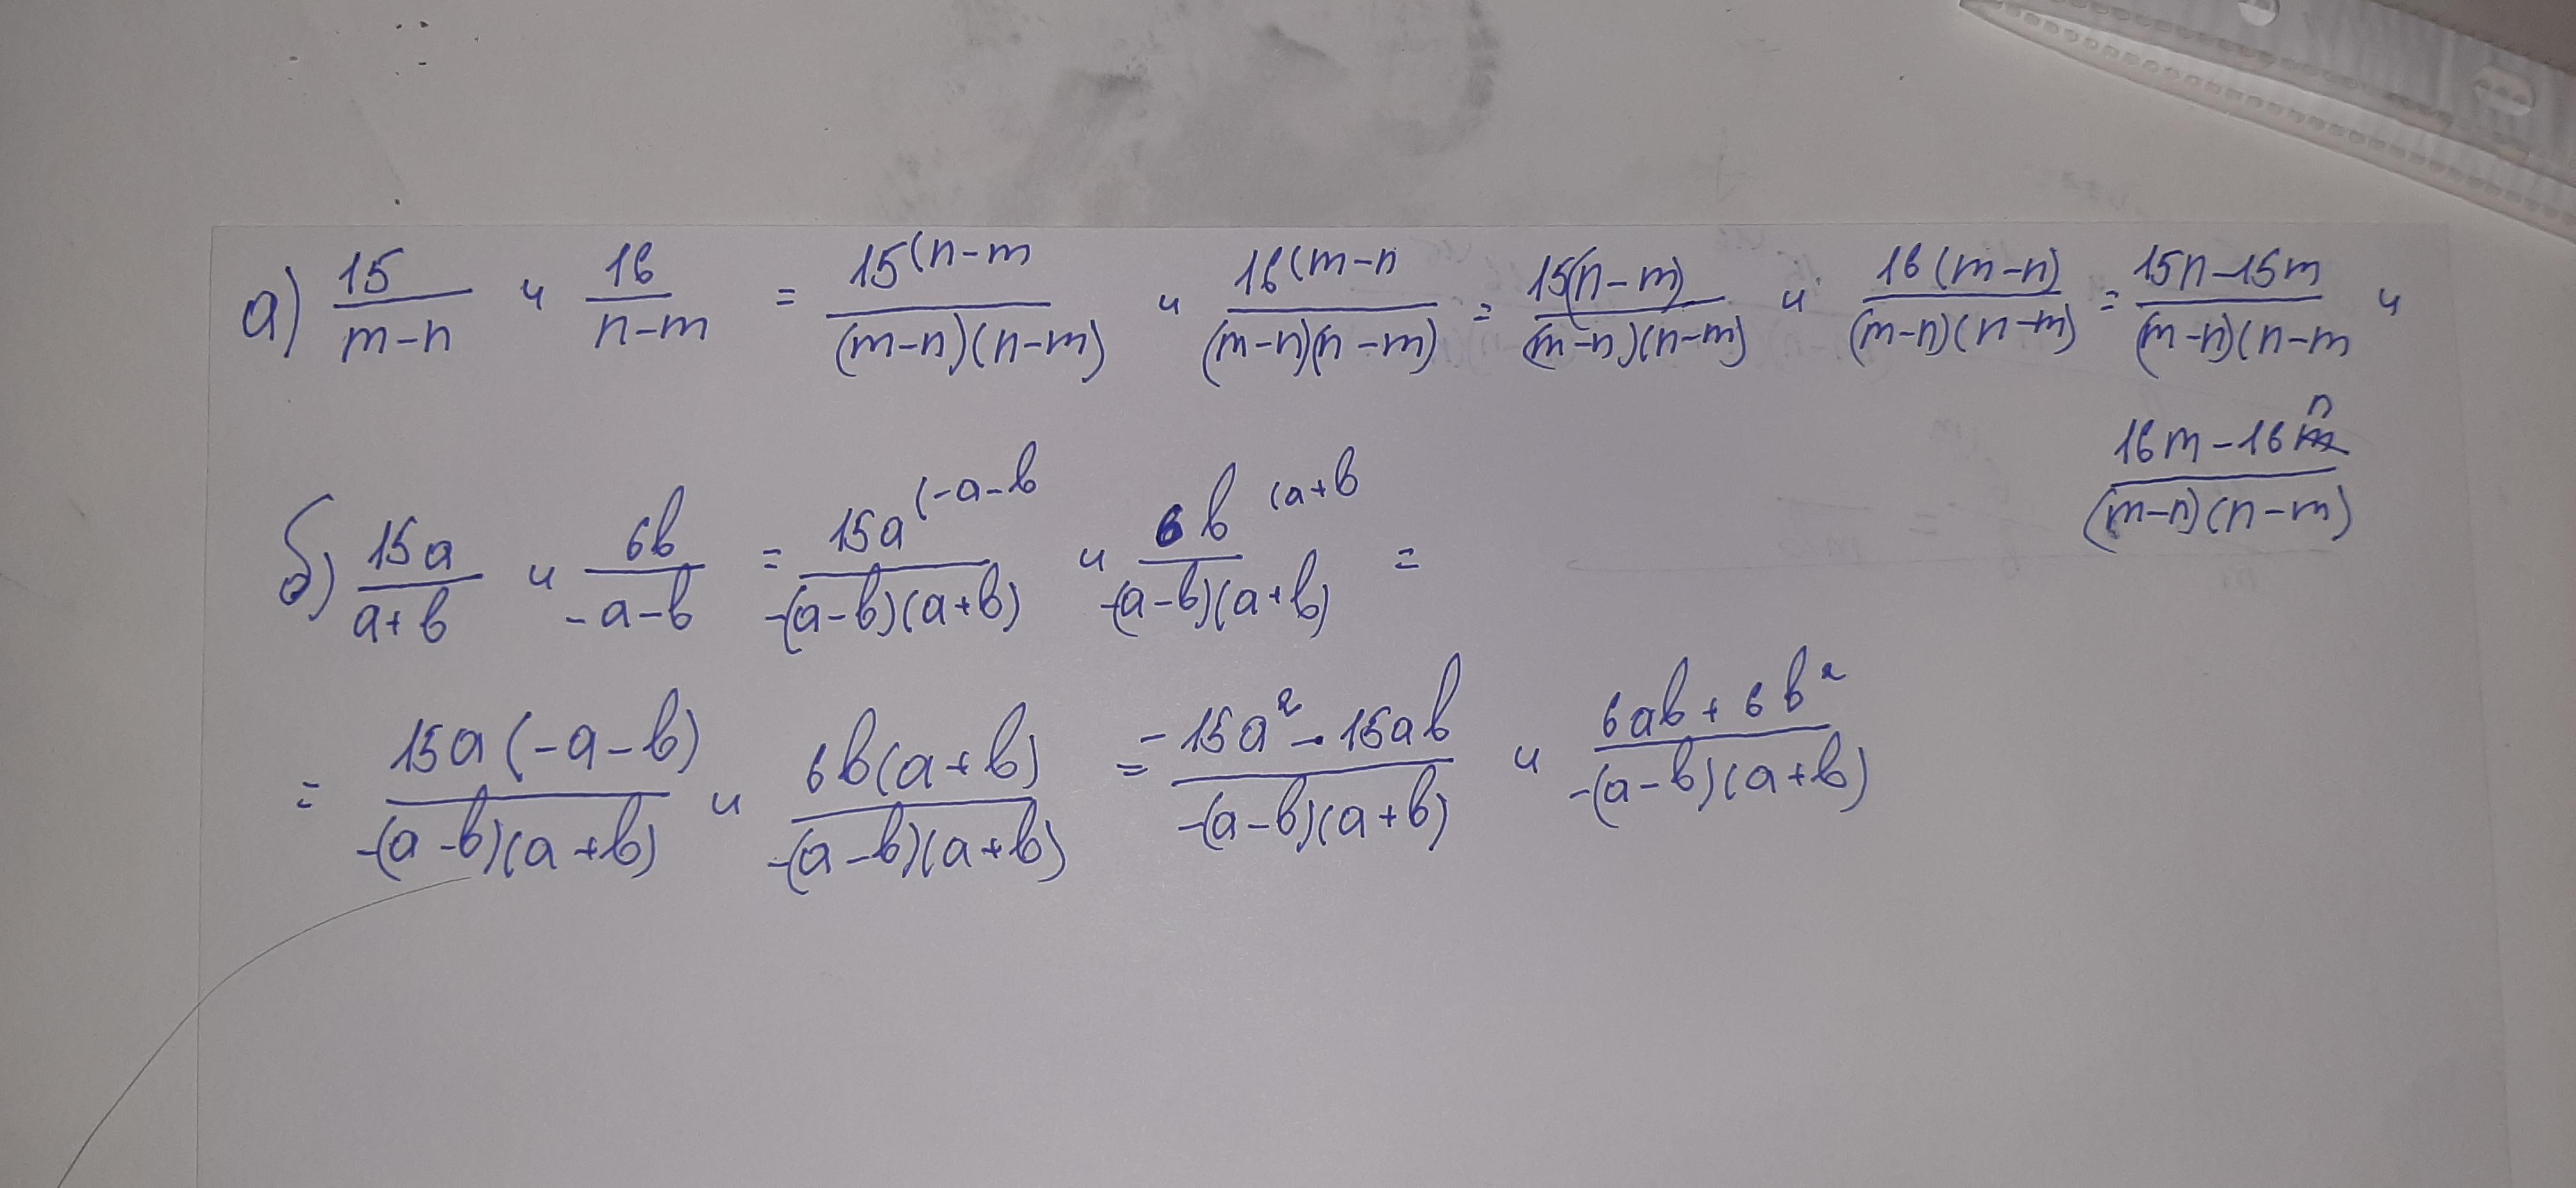 а) 15/(m-n) и 16/(n-m) = 15(n-m/((m-n)(n-m)) и 16(m-n/((m-n)(n-m)) = 15(n-m)/((m-n)(n-m)) и 16(m-n)/((m-n)(n-m)) = 15n-15m/((m-n)(n-m и
16m-16n/((m-n)(n-m))
б) 15a/(a+b) и 6b/(-a-b) = 15a(-a-b/(-(a-b)(a+b)) и 6b(a+b/(-(a-b)(a+b)) =
= 15a(-a-b)/(-(a-b)(a+b)) и 6b(a+b)/(-(a-b)(a+b)) = -15a²-15ab/(-(a-b)(a+b)) и 6ab+6b²/(-(a-b)(a+b))